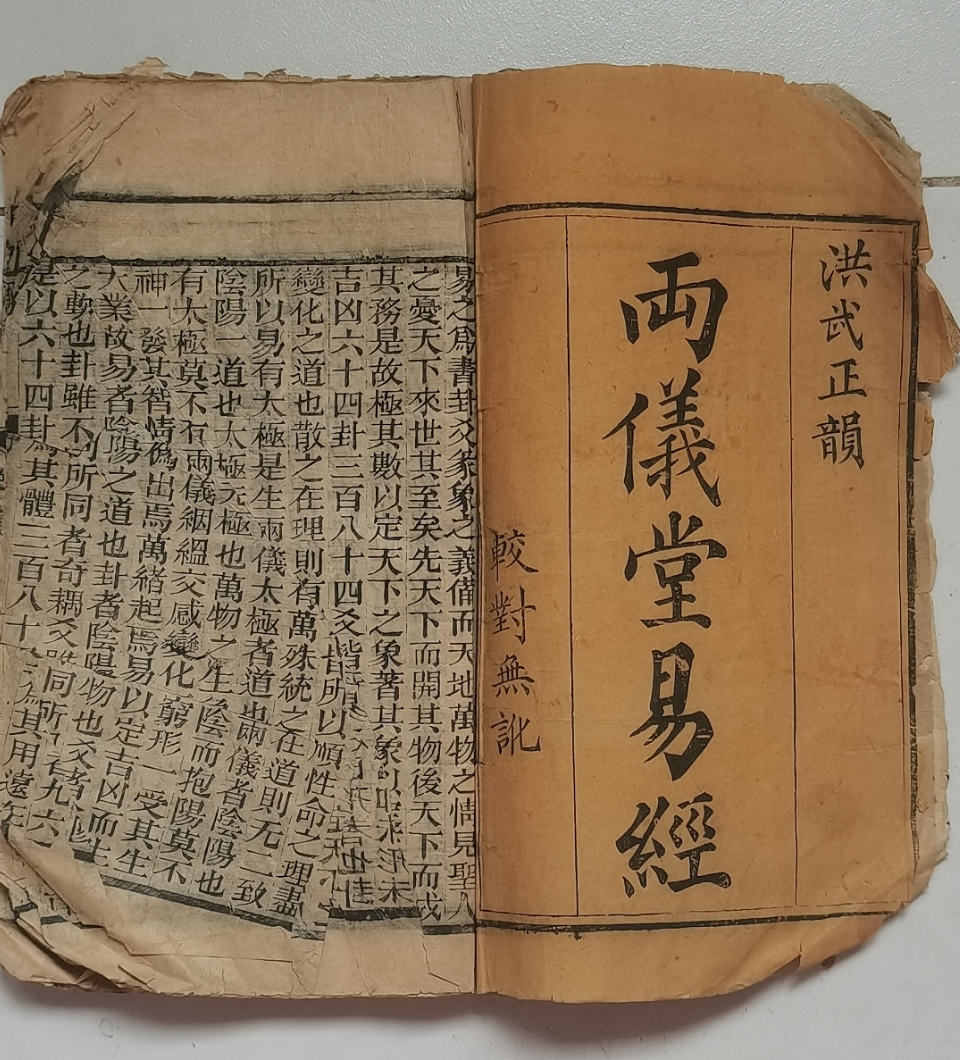 洪武正韻
両儀堂易經
較對無訛
易之爲書卦爻彖象之義備而天地萬物之情見聖人
之憂天下來世其至矣先天下而開其物後天下而成
其務是故極其數以定天下之象著其象以定天下之
吉凶六十四卦三百八十四爻皆所以順性命之理盡
變化之道也散之在理則有萬殊統之在道則无二致
所以易有太極是生兩儀太極者道也兩儀者陰陽也
陰陽一道也太極无極也萬物之生陰而抱陽莫不
有太極莫不有兩儀絪縕交感變化窮形一受其生
神一發其智情僞出焉萬緒起焉易以定吉凶而生
大業故易者陰陽之道也卦者陰陽物也爻者
之動也卦雖不同所同者奇耦爻雖不同所同者九六
是以六十四卦爲其體三百八十爲其用遠在